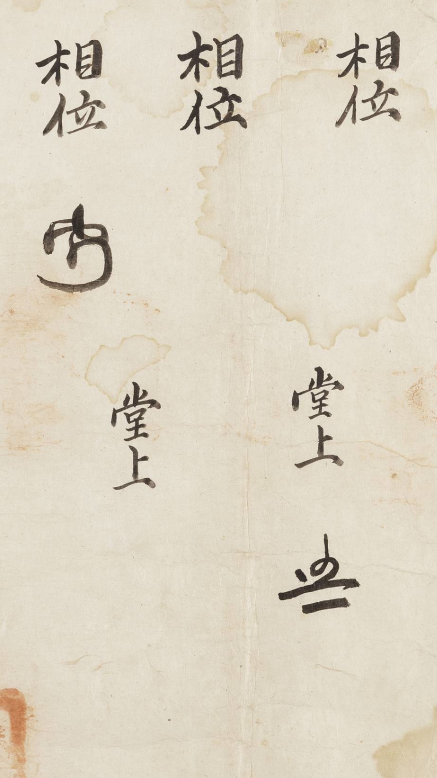 相位
堂上
相位
相位
堂上